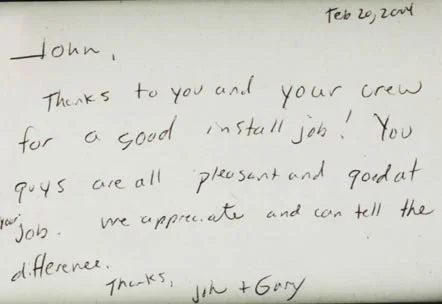 Feb 20, 2004
John,
Thanks to you and your crew
for a good install job! You
guys are all pleasant and good at
your job. We appreciate and can tell the
difference.
Thanks, + Gary